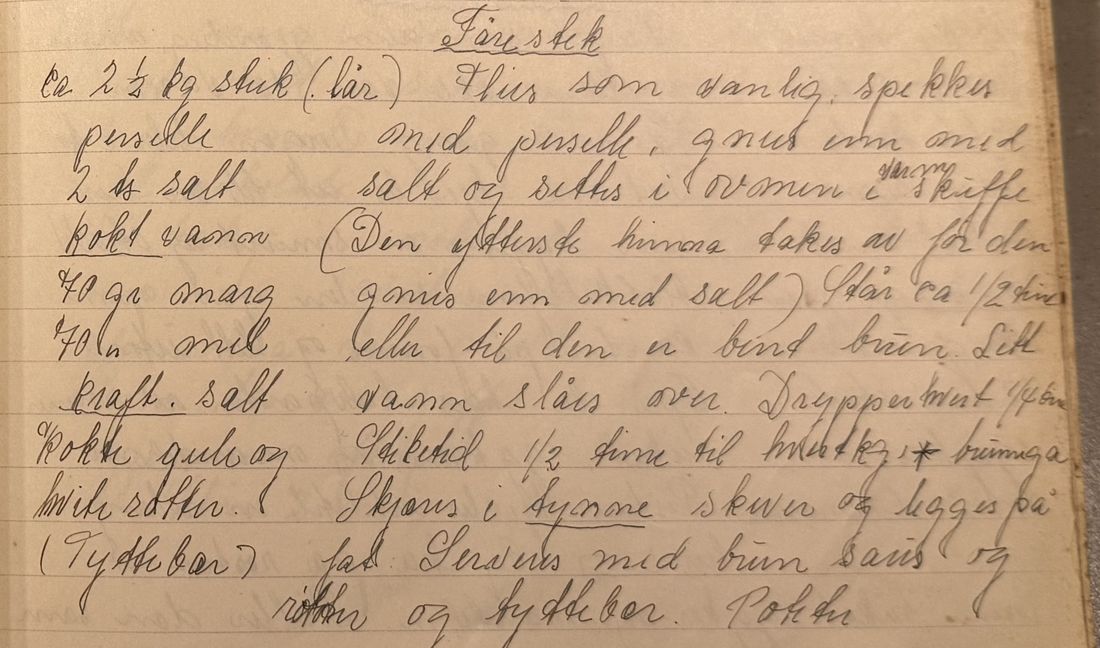 Fårestek
ca 2 ½ kg stek (lår) Flies som vanlig. spekkes
perselle med perselle, gnies inn med
2 ts salt salt og settes i ovnen i varm skuffe
kokt vann (Den ytterste hinna takes av før den
70 gr marg gnies inn med salt) Står ca 1/2 time
70 " mel eller til den er bent brun. Litt
kraft. salt vann slåes over. Drypper hvert 1/4 time
Kokte gule og Steketid 1/2 time til hvert kg,
hvite røtter. Skjæres i tynne skiver og legges på
(Tyttebær) fat. Serveres med brun saus og
røtter og tyttebær. Poteter